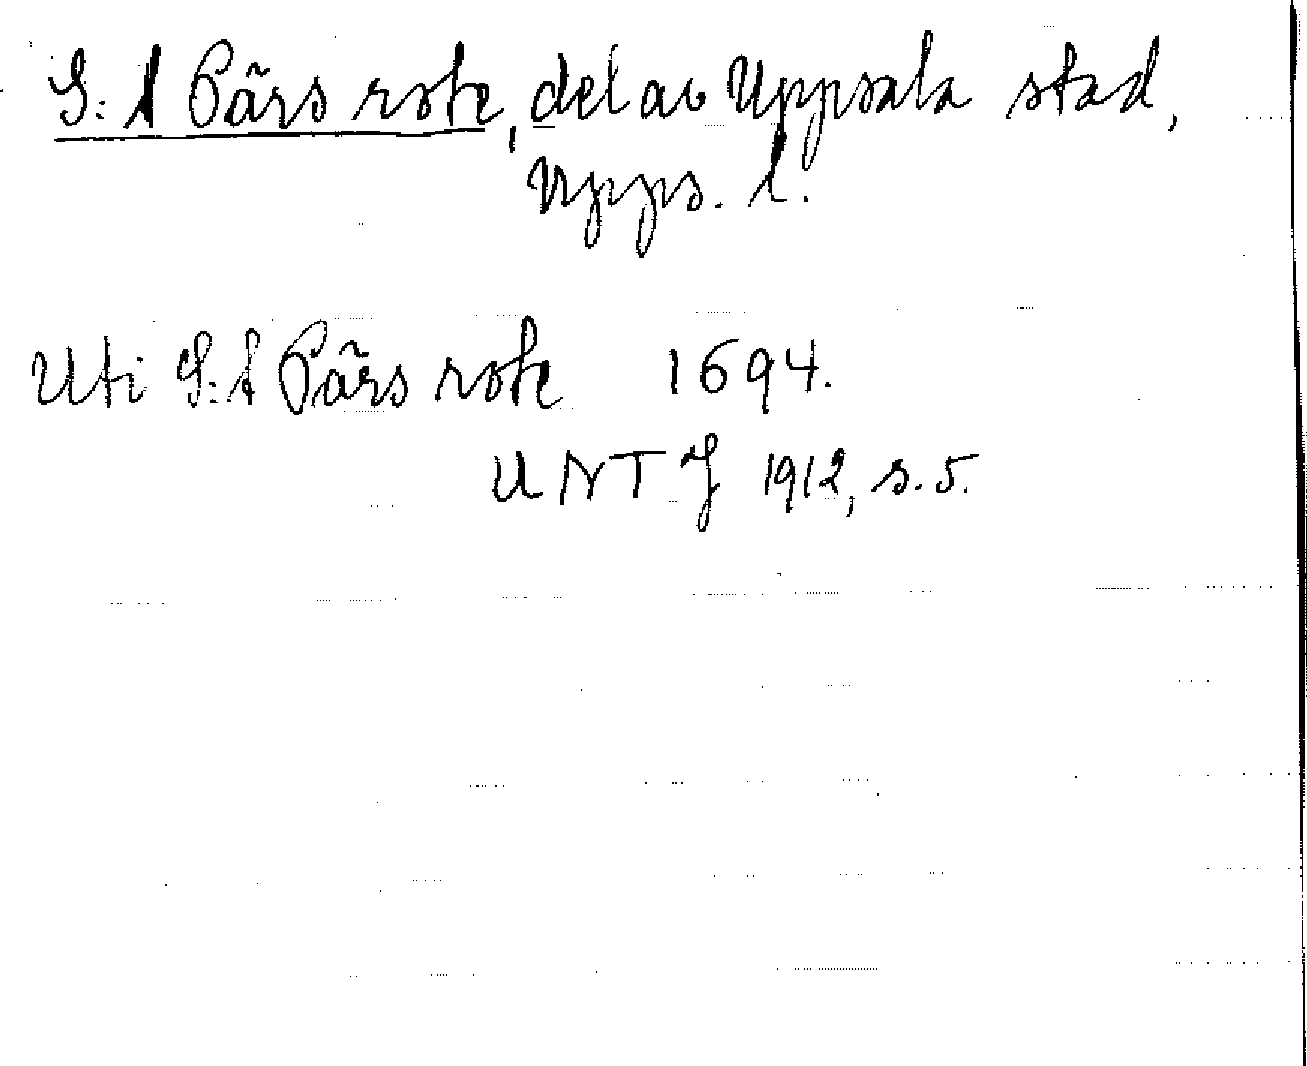 S:t Pärs rote, del av Uppsala stad,
Upps. l.
Uti S:t Pärs rote 1694.
UNTJ 1912, s. 5.